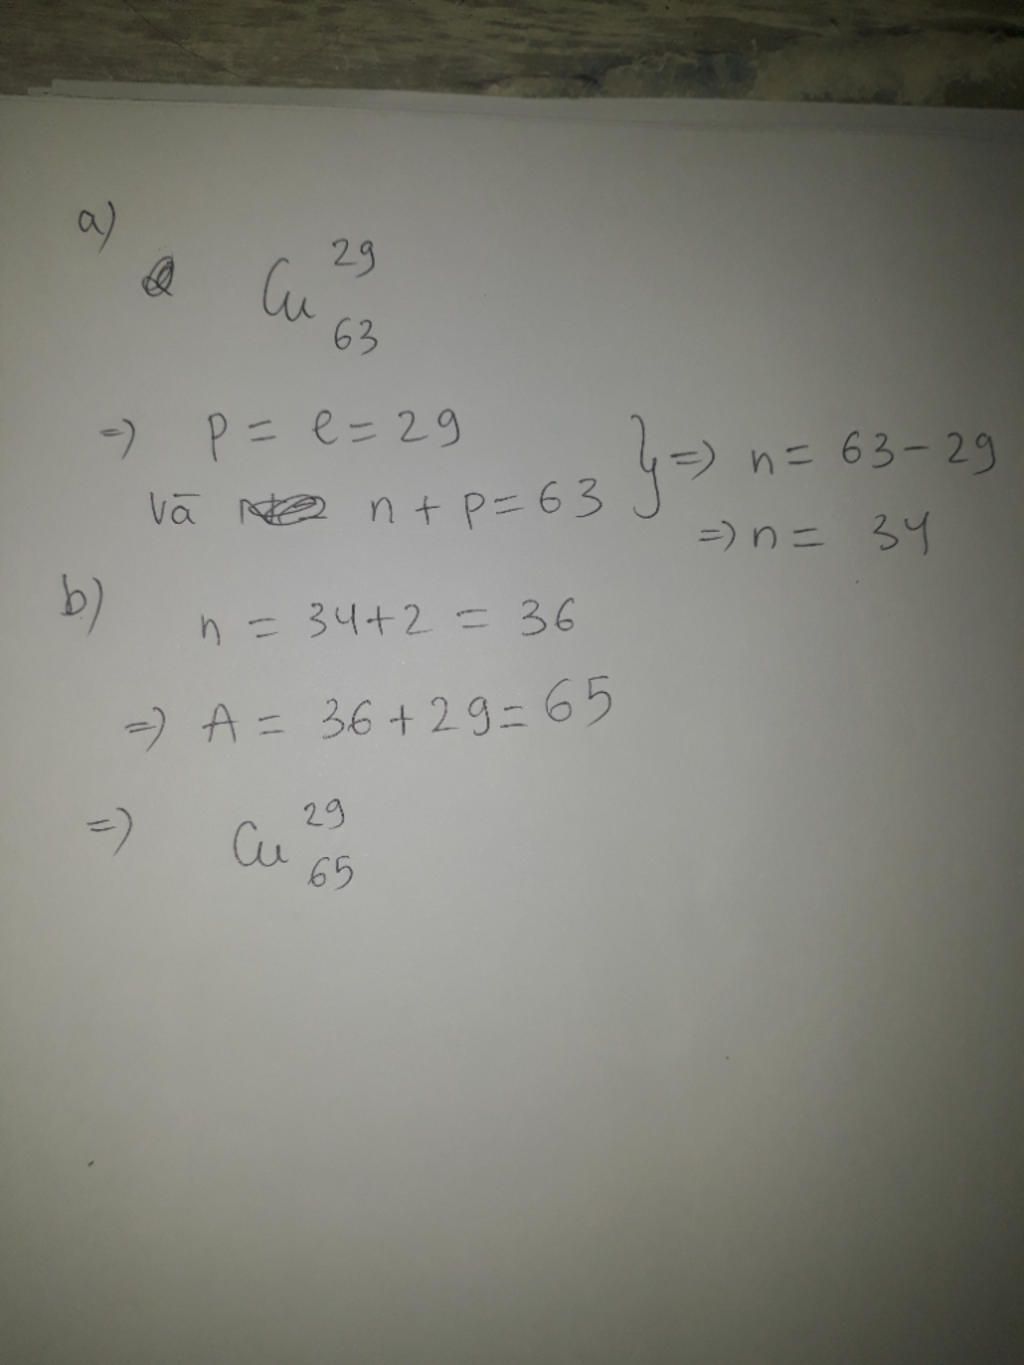 a)
Cu 29 63
=) p = e = 29
và n + p = 63 } =) n = 63 - 29
=) n = 34
b) n = 34 + 2 = 36
=) A = 36 + 29 = 65
=) Cu 29 65